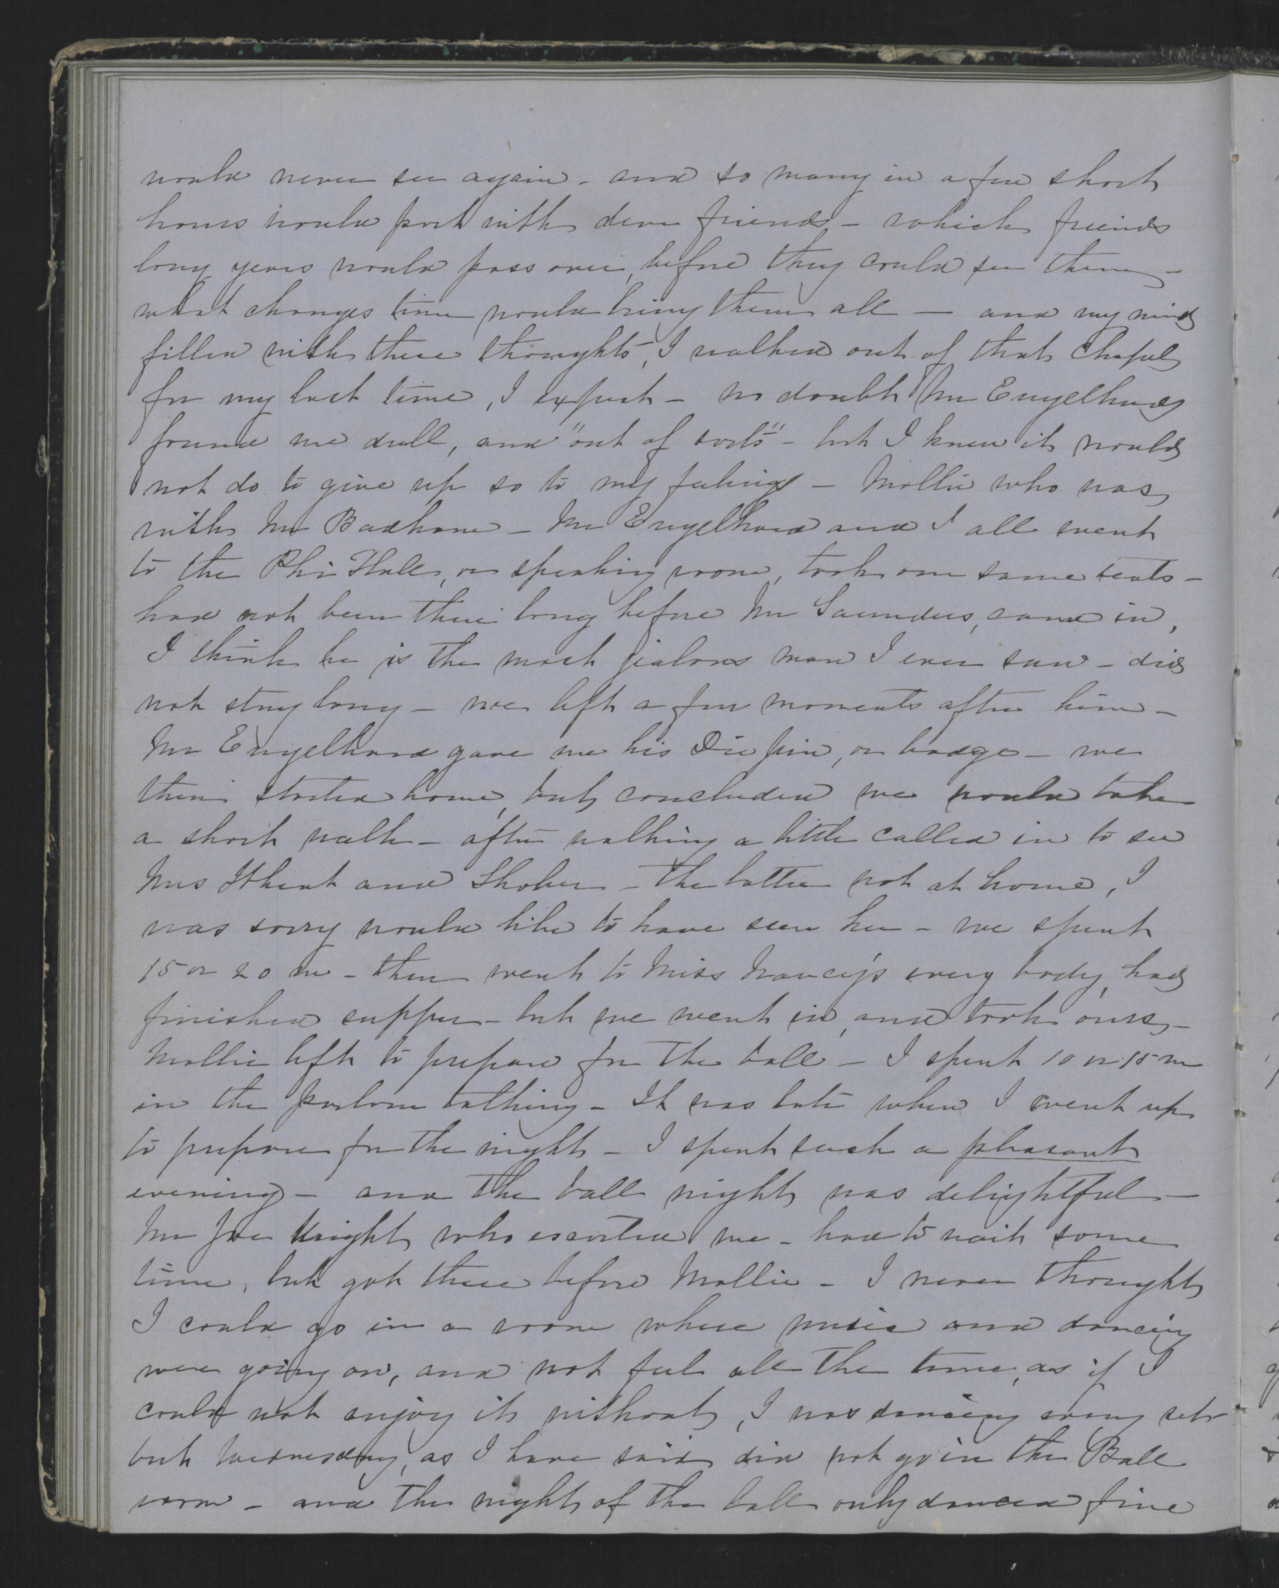 would never see again - and so many in a few short
hours would part with dear friends - which friends
long years would pass over, before they could see them -
what changes time would bring them all — and my mind
filled with these thoughts, I walked out of that Chapel
for my last time, I expect - no doubt Mr Engelhard
found me dull, and "out of sorts" - but I knew it would
not do to give up so to my feelings - Mollie who was
with Mr Badham - Mr Engelhard and I all went
to the Phi Hall, or speaking room, took our same seats -
had not been there long before Mr Saunders, came in,
I think he is the most jealous man I ever saw - did
not stay long - we left a few moments after him -
Mr Engelhard gave me his Die pin, or badge - we
then started home, but concluded we would take
a short walk - after walking a little called in to see
Mrs Wheat and Shober - the latter not at home, I
was sorry would like to have seen her - we spent
15 or 20 m - then went to Miss Nancy's every body, had
finished supper - but we went in, and took ours -
Mollie left to prepare for the ball - I spent 10 or 15 m
in the parlour talking - It was late when I went up
to prepare for the night - I spent such a pleasant
evening - and the ball night was delightful -
Mr Joe Wright who escorted me - had to wait some
time, but got there before Mollie - I never thought
I could go in a room where music and dancing
were going on, and not feel all the time, as if I
could not enjoy it without, I was dancing every set -
but Wednesday, as I have said did not go in the Ball
room - and the night of the ball only danced five